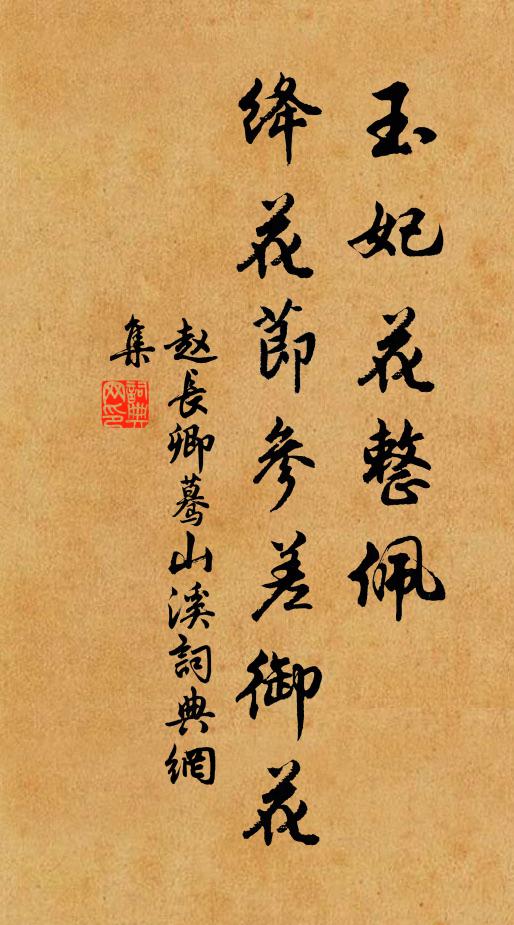 玉妃花整佩
绛花節參差御花
赵長卿驀山溪詞典網
集
詞典網印